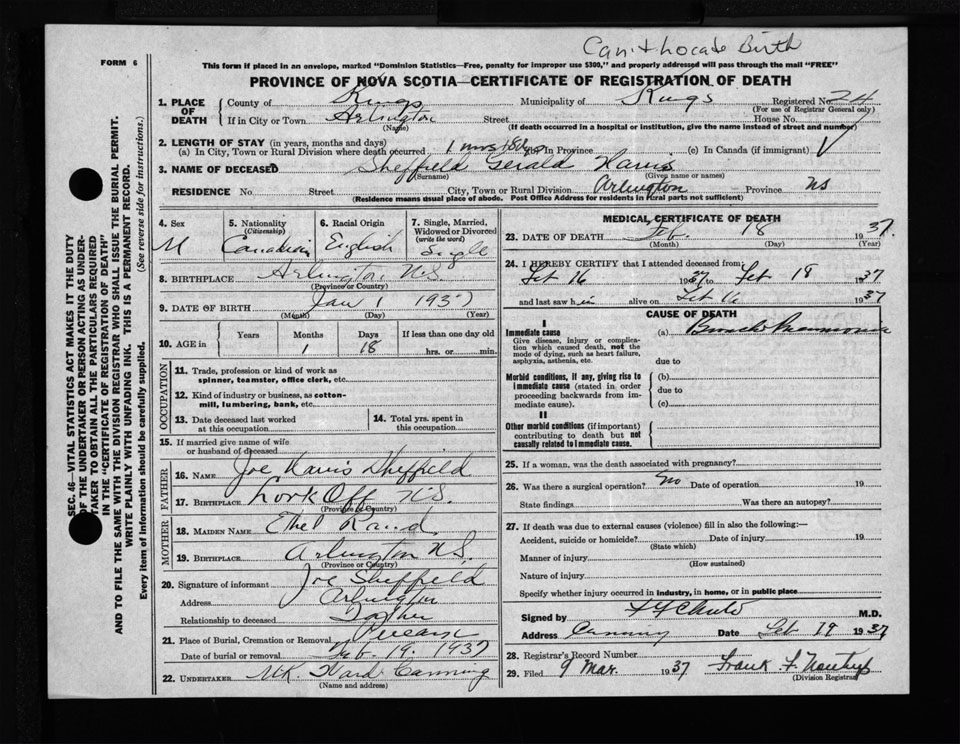 Can't Locate Birth
FORM 6
This form if placed in an envelope, marked "Dominion Statistics—Free, penalty for improper use $300," and properly addressed will pass through the mail "FREE"
PROVINCE OF NOVA SCOTIA—CERTIFICATE OF REGISTRATION OF DEATH
1. PLACE OF DEATH
County of Kings Municipality of Kings Registered No. 24
(For use of Registrar General only)
If in City or Town Arlington Street House No.
(Name) (If death occurred in a hospital or institution, give the name instead of street and number)
2. LENGTH OF STAY (in years, months and days)
(a) In City, Town or Rural Division where death occurred 1 mos 18 (b) In Province (c) In Canada (if immigrant)
3. NAME OF DECEASED Sheffield Gerald Harris
(Surname) (Given name or names)
RESIDENCE No Street City, Town or Rural Division Arlington Province NS
(Residence means usual place of abode. Post Office Address for residents in rural parts not sufficient)
4. Sex M
5. Nationality (Citizenship) Canadian
6. Racial Origin English
7. Single, Married, Widowed or Divorced (write the word) Single
8. BIRTHPLACE Arlington N.S.
(Province or Country)
9. DATE OF BIRTH Jan 1 1937
(Month) (Day) (Year)
10. AGE in Years Months 1 Days 18 If less than one day old hrs. or min.
OCCUPATION
11. Trade, profession or kind of work as spinner, teamster, office clerk, etc.
12. Kind of industry or business, as cotton-mill, lumbering, bank, etc.
13. Date deceased last worked at this occupation
14. Total yrs. spent in this occupation
15. If married give name of wife or husband of deceased
FATHER
16. NAME Joe Harris Sheffield
17. BIRTHPLACE Look Off N.S.
(Province or Country)
MOTHER
18. MAIDEN NAME Ethel Rand
19. BIRTHPLACE Arlington N.S.
(Province or Country)
20. Signature of informant Joe Sheffield
Address Arlington
Relationship to deceased Father
21. Place of Burial, Cremation or Removal
Date of burial or removal Feb. 19. 1937
22. UNDERTAKER Ward Canning
(Name and address)
MEDICAL CERTIFICATE OF DEATH
23. DATE OF DEATH Feb. 18 1937.
(Month) (Day) (Year)
24. I HEREBY CERTIFY that I attended deceased from:
Feb 16 1937 to Feb 18 1937
and last saw h im alive on Feb 16 1937
CAUSE OF DEATH
I
Immediate cause (a) Broncho Pneumonia
Give disease, injury or complication which caused death, not the mode of dying, such as heart failure, asphyxia, asthenia, etc.
due to
Morbid conditions, if any, giving rise to immediate cause (stated in order proceeding backwards from immediate cause).
(b)
due to
(c)
II
Other morbid conditions (if important) contributing to death but not causally related to immediate cause.
25. If a woman, was the death associated with pregnancy?
26. Was there a surgical operation? No Date of operation 19
State findings Was there an autopsy?
27. If death was due to external causes (violence) fill in also the following:—
Accident, suicide or homicide? Date of injury 19
(State which)
Manner of injury
(How sustained)
Nature of injury
Specify whether injury occurred in industry, in home, or in public place
Signed by M.D.
Address Canning Date Feb 19 1937
28. Registrar's Record Number
29. Filed 9 Mar. 1937 Frank F.
(Division Registrar)
SEC. 46—VITAL STATISTICS ACT MAKES IT THE DUTY
OF THE UNDERTAKER OR PERSON ACTING AS UNDER-
TAKER TO OBTAIN ALL THE PARTICULARS REQUIRED
IN THE "CERTIFICATE OF REGISTRATION OF DEATH"
AND TO FILE THE SAME WITH THE DIVISION REGISTRAR WHO SHALL ISSUE THE BURIAL PERMIT.
WRITE PLAINLY WITH UNFADING INK. THIS IS A PERMANENT RECORD.
Every item of information should be carefully supplied. (See reverse side for instructions.)